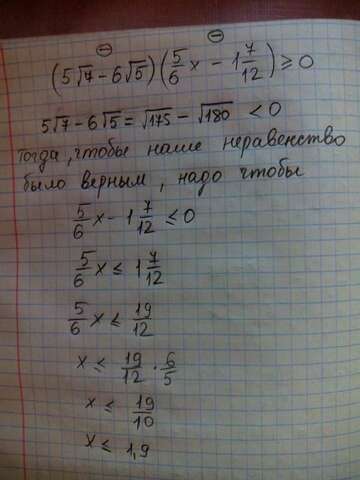 ⊖ ⊖
(5√7-6√5)(5/6 x - 1 7/12) ≥ 0
5√7-6√5 = √175 - √180 < 0
Тогда, чтобы наше неравенство
было верным, надо чтобы
5/6 x - 1 7/12 ≤ 0
5/6 x ≤ 1 7/12
5/6 x ≤ 19/12
x ≤ 19/12 · 6/5
x ≤ 19/10
x ≤ 1,9